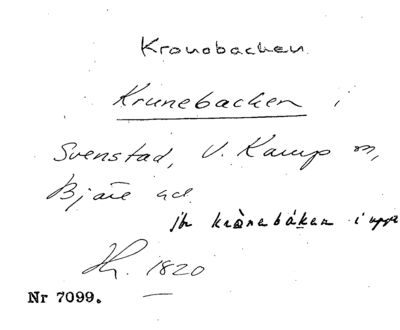 Kronobacken
Krunebacken i
Svenstad, V. Karup sn,
Bjäre hd.
jfr krònebáken i upps
Hr. 1820
Nr 7099.